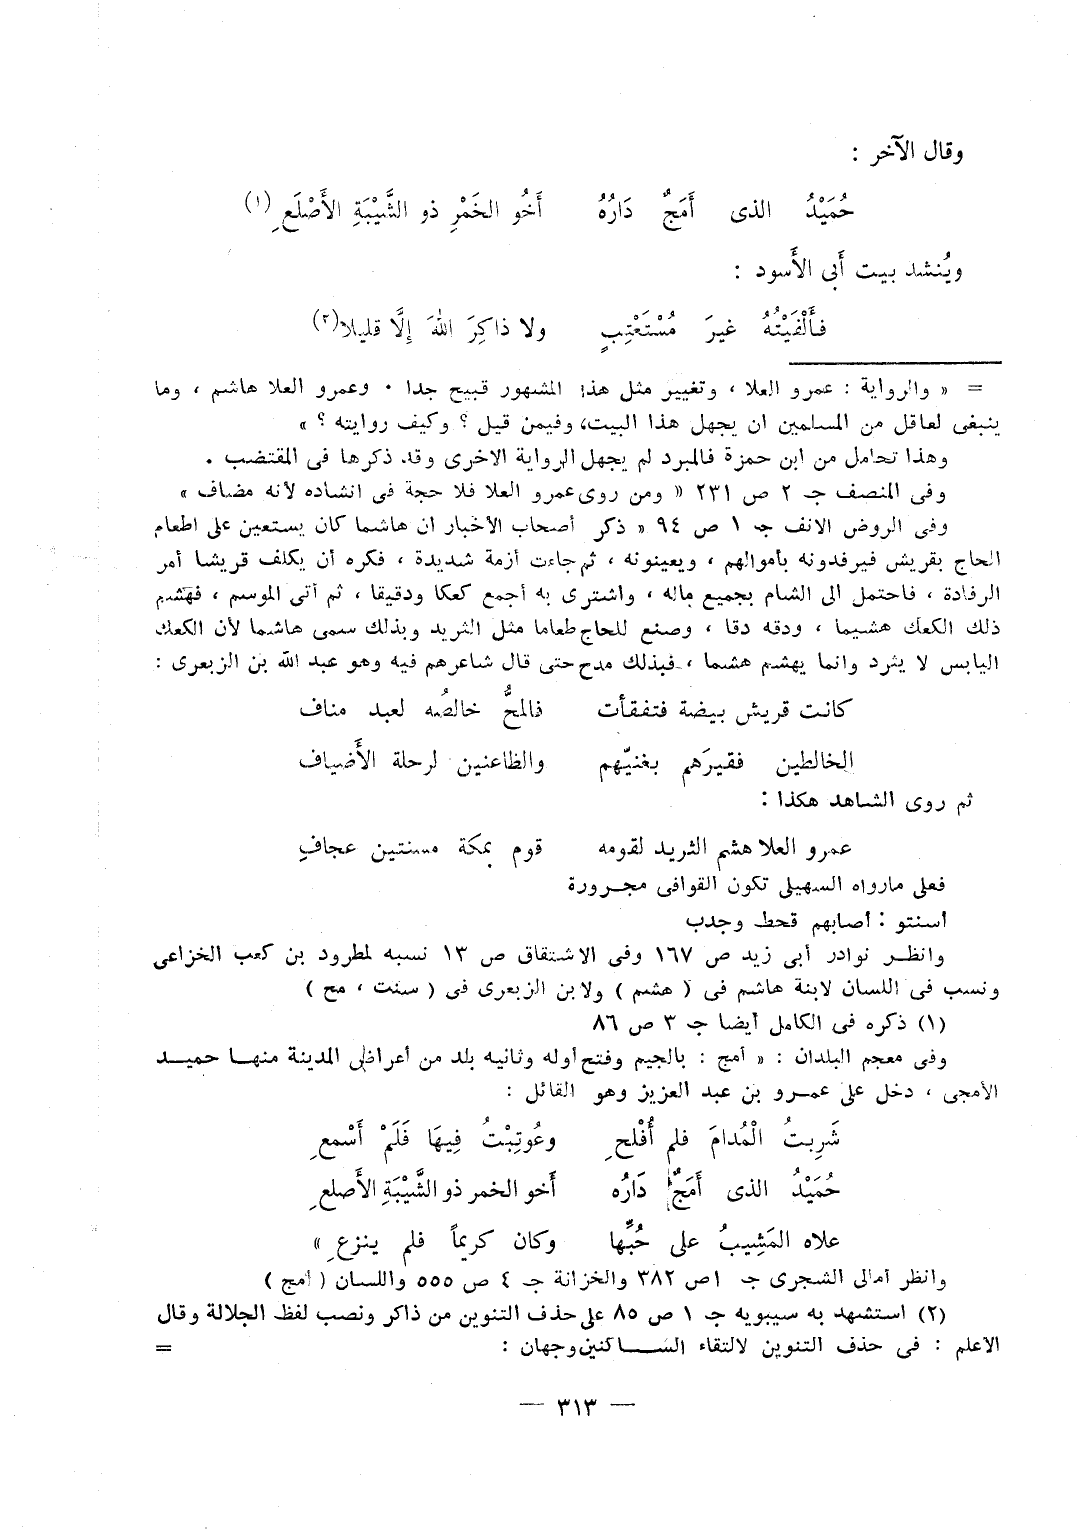 وقال الآخر :
حُمَيْدُ الذى أَمَجٌ دَارُهُ أَخُو الخَمْرِ ذو الشَّيْبَةِ الأَصْلَعِ (١)
ويُنشد بيت أَبى الأَسود :
فأَلْفَيْتُهُ غيرَ مُسْتَعْتِبٍ ولا ذاكِرَ اللهَ إِلَّا قليلا(٢)
= « والرواية : عمرو العلا ، وتغيير مثل هذا المشهور قبيح جدا . وعمرو العلا هاشم ، وما
ينبغى لعاقل من المسلمين ان يجهل هذا البيت، وفيمن قيل ؟ وكيف روايته ؟ »
وهذا تحامل من ابن حمزة فالمبرد لم يجهل الرواية الاخرى وقد ذكرها فى المقتضب .
وفى المنصف جـ ٢ ص ٢٣١ « ومن روى عمرو العلا فلا حجة فى انشاده لأنه مضاف »
وفى الروض الانف جـ ١ ص ٩٤ « ذكر أصحاب الأخبار ان هاشما كان يستعين على اطعام
الحاج بقريش فيرفدونه بأموالهم ، ويعينونه ، ثم جاءت أزمة شديدة ، فكره أن يكلف قريشا أمر
الرفادة ، فاحتمل الى الشام بجميع ماله ، واشترى به أجمع كعكا ودقيقا ، ثم أتى الموسم ، فهشم
ذلك الكعك هشيما ، ودقه دقا ، وصنع للحاج طعاما مثل الثريد وبذلك سمى هاشما لأن الكعك
اليابس لا يثرد وانما يهشم هشما ، فبذلك مدح حتى قال شاعرهم فيه وهو عبد الله بن الزبعرى :
كانت قريش بيضة فتفقأت فالمحُّ خالصُه لعبد مناف
الخالطين فقيرَهم بغنيّهم والظاعنين لرحلة الأَضياف
ثم روى الشاهد هكذا :
عمرو العلا هشم الثريد لقومه قوم بمكة مسنتين عجافِ
فعلى مارواه السهيلى تكون القوافى مجرورة
أسنتو : أصابهم قحط وجدب
وانظر نوادر أبى زيد ص ١٦٧ وفى الاشتقاق ص ١٣ نسبه لمطرود بن كعب الخزاعى
ونسب فى اللسان لابنة هاشم فى ( هشم ) ولابن الزبعرى فى ( سنت ، مح )
(١) ذكره فى الكامل أيضا جـ ٣ ص ٨٦
وفى معجم البلدان : « أمج : بالجيم وفتح أوله وثانيه بلد من أعراض المدينة منها حميد
الأمجى ، دخل على عمرو بن عبد العزيز وهو القائل :
شَرِبتُ الْمُدامَ فلم أُفْلحِ وعُوتِبْتُ فِيهَا فَلَمْ أَسْمعِ
حُمَيْدُ الذى أَمَجٌ دَارُه أَخو الخمر ذو الشَّيْبَةِ الأَصلعِ
علاه المَشِيبُ على حُبِّها وكان كريماً فلم ينزعِ »
وانظر أمالى الشجرى جـ ١ص ٣٨٢ والخزانة جـ ٤ ص ٥٥٥ واللسان ( أمج )
(٢) استشهد به سيبويه جـ ١ ص ٨٥ على حذف التنوين من ذاكر ونصب لفظ الجلالة وقال
الأعلم : فى حذف التنوين لالتقاء الساكنين وجهان : =
— ٣١٣ —